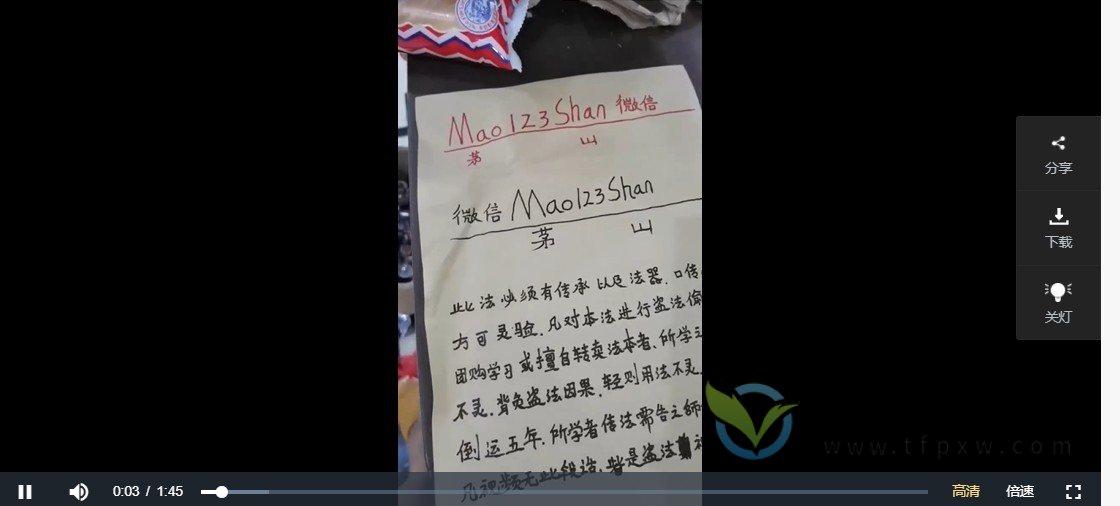 Mao123Shan 微信
茅 山
微信 Mao123Shan
茅 山
此法必须有传承以及法器.口传
方可灵验.凡对本法进行盗法偷
团购学习或擅自转卖法本者.所学之
不灵.背负盗法因果.轻则用法不灵.
倒运五年.所学者传法需告之师
凡视频无此段造.皆是盗法
分享
下载
关灯
www.tfpxw.com
0:03 / 1:45
高清
倍速